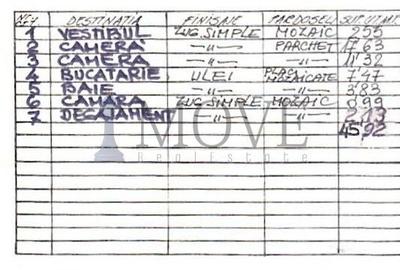 NR. CEV DESTINATIA FINISAJE PARDOSELI SUP. UT. M²
1 VESTIBUL ZUG. SIMPLE MOZAIC 2'55
2 CAMERA -"- PARCHET 17'63
3 CAMERA -"- -"- 11'32
4 BUCATARIE ULEI PLACI MOZAICATE 7'47
5 BAIE -"- -"- 3'83
6 CAMARA ZUG. SIMPLE MOZAIC 0'99
7 DEGAJAMENT -"- -"- 2'13
45'92
MOVE
RealEstate